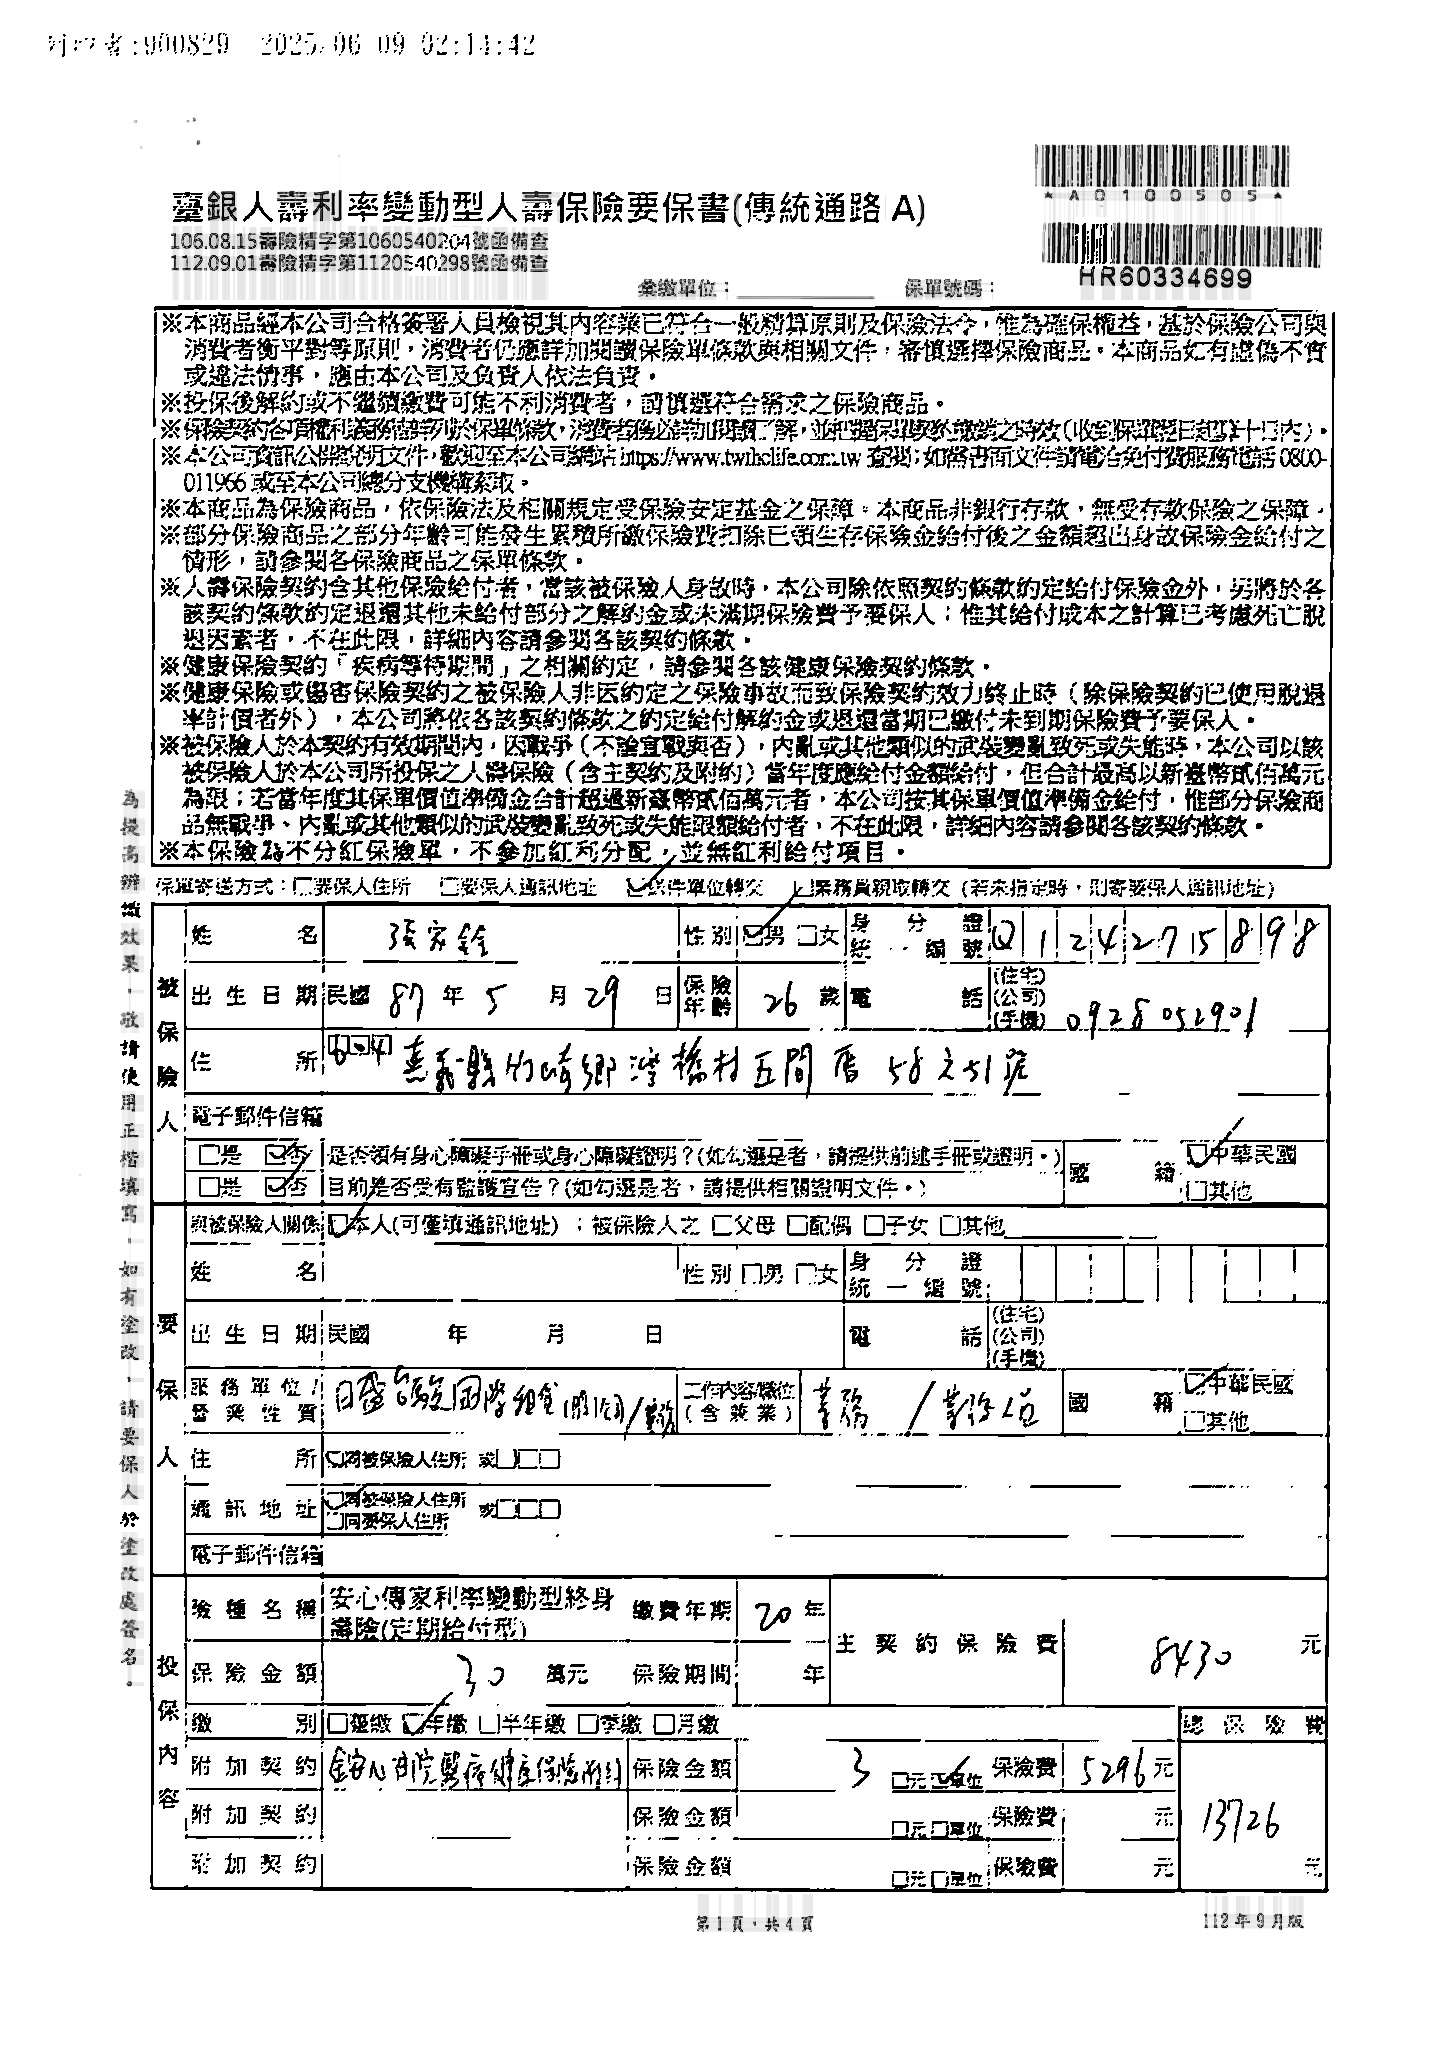 列印者:900829 2025/06/09 02:14:42
*A0100505*
臺銀人壽利率變動型人壽保險要保書(傳統通路 A)
106.08.15壽險精字第1060540204號函備查
112.09.01壽險精字第1120540298號函備查
HR60334699
彙繳單位： 保單號碼：
※本商品經本公司合格簽署人員檢視其內容業已符合一般精算原則及保險法令，惟為確保權益，基於保險公司與
消費者衡平對等原則，消費者仍應詳加閱讀保險單條款與相關文件，審慎選擇保險商品。本商品如有虛偽不實
或違法情事，應由本公司及負責人依法負責。
※投保後解約或不繼續繳費可能不利消費者，請慎選符合需求之保險商品。
※保險契約各項權利義務皆詳列於保單條款，消費者務必詳加閱讀了解，並把握保單契約撤銷之時效(收到保單翌日起算十日內)。
※本公司資訊公開說明文件，歡迎至本公司網站https://www.twfhclife.com.tw 查閱；如需書面文件請電洽免付費服務電話0800-
011966 或至本公司總分支機構索取。
※本商品為保險商品，依保險法及相關規定受保險安定基金之保障。本商品非銀行存款，無受存款保險之保障。
※部分保險商品之部分年齡可能發生累積所繳保險費扣除已領生存保險金給付後之金額超出身故保險金給付之
情形，請參閱各保險商品之保單條款。
※人壽保險契約含其他保險給付者，當該被保險人身故時，本公司除依照契約條款約定給付保險金外，另將於各
該契約條款約定退還其他未給付部分之解約金或未滿期保險費予要保人；惟其給付成本之計算已考慮死亡脫
退因素者，不在此限，詳細內容請參閱各該契約條款。
※健康保險契約「疾病等待期間」之相關約定，請參閱各該健康保險契約條款。
※健康保險或傷害保險契約之被保險人非因約定之保險事故而致保險契約效力終止時（除保險契約已使用脫退
率計價者外），本公司將依各該契約條款之約定給付解約金或退還當期已繳付未到期保險費予要保人。
※被保險人於本契約有效期間內，因戰爭（不論宣戰與否），內亂或其他類似的武裝變亂致死或失能時，本公司以該
被保險人於本公司所投保之人壽保險（含主契約及附約）當年度應給付金額給付，但合計最高以新臺幣貳佰萬元
為限；若當年度其保單價值準備金合計超過新臺幣貳佰萬元者，本公司按其保單價值準備金給付，惟部分保險商
品無戰爭、內亂或其他類似的武裝變亂致死或失能限額給付者，不在此限，詳細內容請參閱各該契約條款。
※本保險為不分紅保險單，不參加紅利分配，並無紅利給付項目。
保單寄送方式：□要保人住所 □要保人通訊地址 ☑收件單位轉交 □業務員親取轉交 (若未指定時，則寄要保人通訊地址)
為提高辦識效果，敬請使用正楷填寫，如有塗改，請要保人於塗改處簽名。
被保險人
姓名 張家銓 性別 ☑男 □女 身分證統一編號 Q124275898
出生日期 民國 87 年 5 月 29 日 保險年齡 26 歲 電話 (住宅) (公司) (手機) 0928052901
住所 604 嘉義縣竹崎鄉灣橋村五間厝58之51號
電子郵件信箱
□是 ☑否 是否領有身心障礙手冊或身心障礙證明？(如勾選是者，請提供前述手冊或證明。)
□是 ☑否 目前是否受有監護宣告？(如勾選是者，請提供相關證明文件。)
國籍 ☑中華民國 □其他
要保人
與被保險人關係 ☑本人(可僅填通訊地址)；被保險人之 □父母 □配偶 □子女 □其他
姓名 性別 □男 □女 身分證統一編號
出生日期 民國 年 月 日 電話 (住宅) (公司) (手機)
服務單位/營業性質 日盛台駿國際租賃 /業務 工作內容/職位(含兼業) 業務 / 業務人員 國籍 ☑中華民國 □其他
住所 ☑同被保險人住所 或□□□
通訊地址 ☑同被保險人住所 或□□□
□同要保人住所
電子郵件信箱
投保內容
險種名稱 安心傳家利率變動型終身壽險(定期給付型) 繳費年期 20 年 主契約保險費 8430 元
保險金額 30 萬元 保險期間 年
繳別 □躉繳 ☑年繳 □半年繳 □季繳 □月繳 總保險費
附加契約 金安心住院醫療健康保險附約 保險金額 3 □元 ☑單位 保險費 5296 元
附加契約 保險金額 □元 □單位 保險費 元 13726
附加契約 保險金額 □元 □單位 保險費 元 元
第 1 頁，共 4 頁
112 年 9 月版